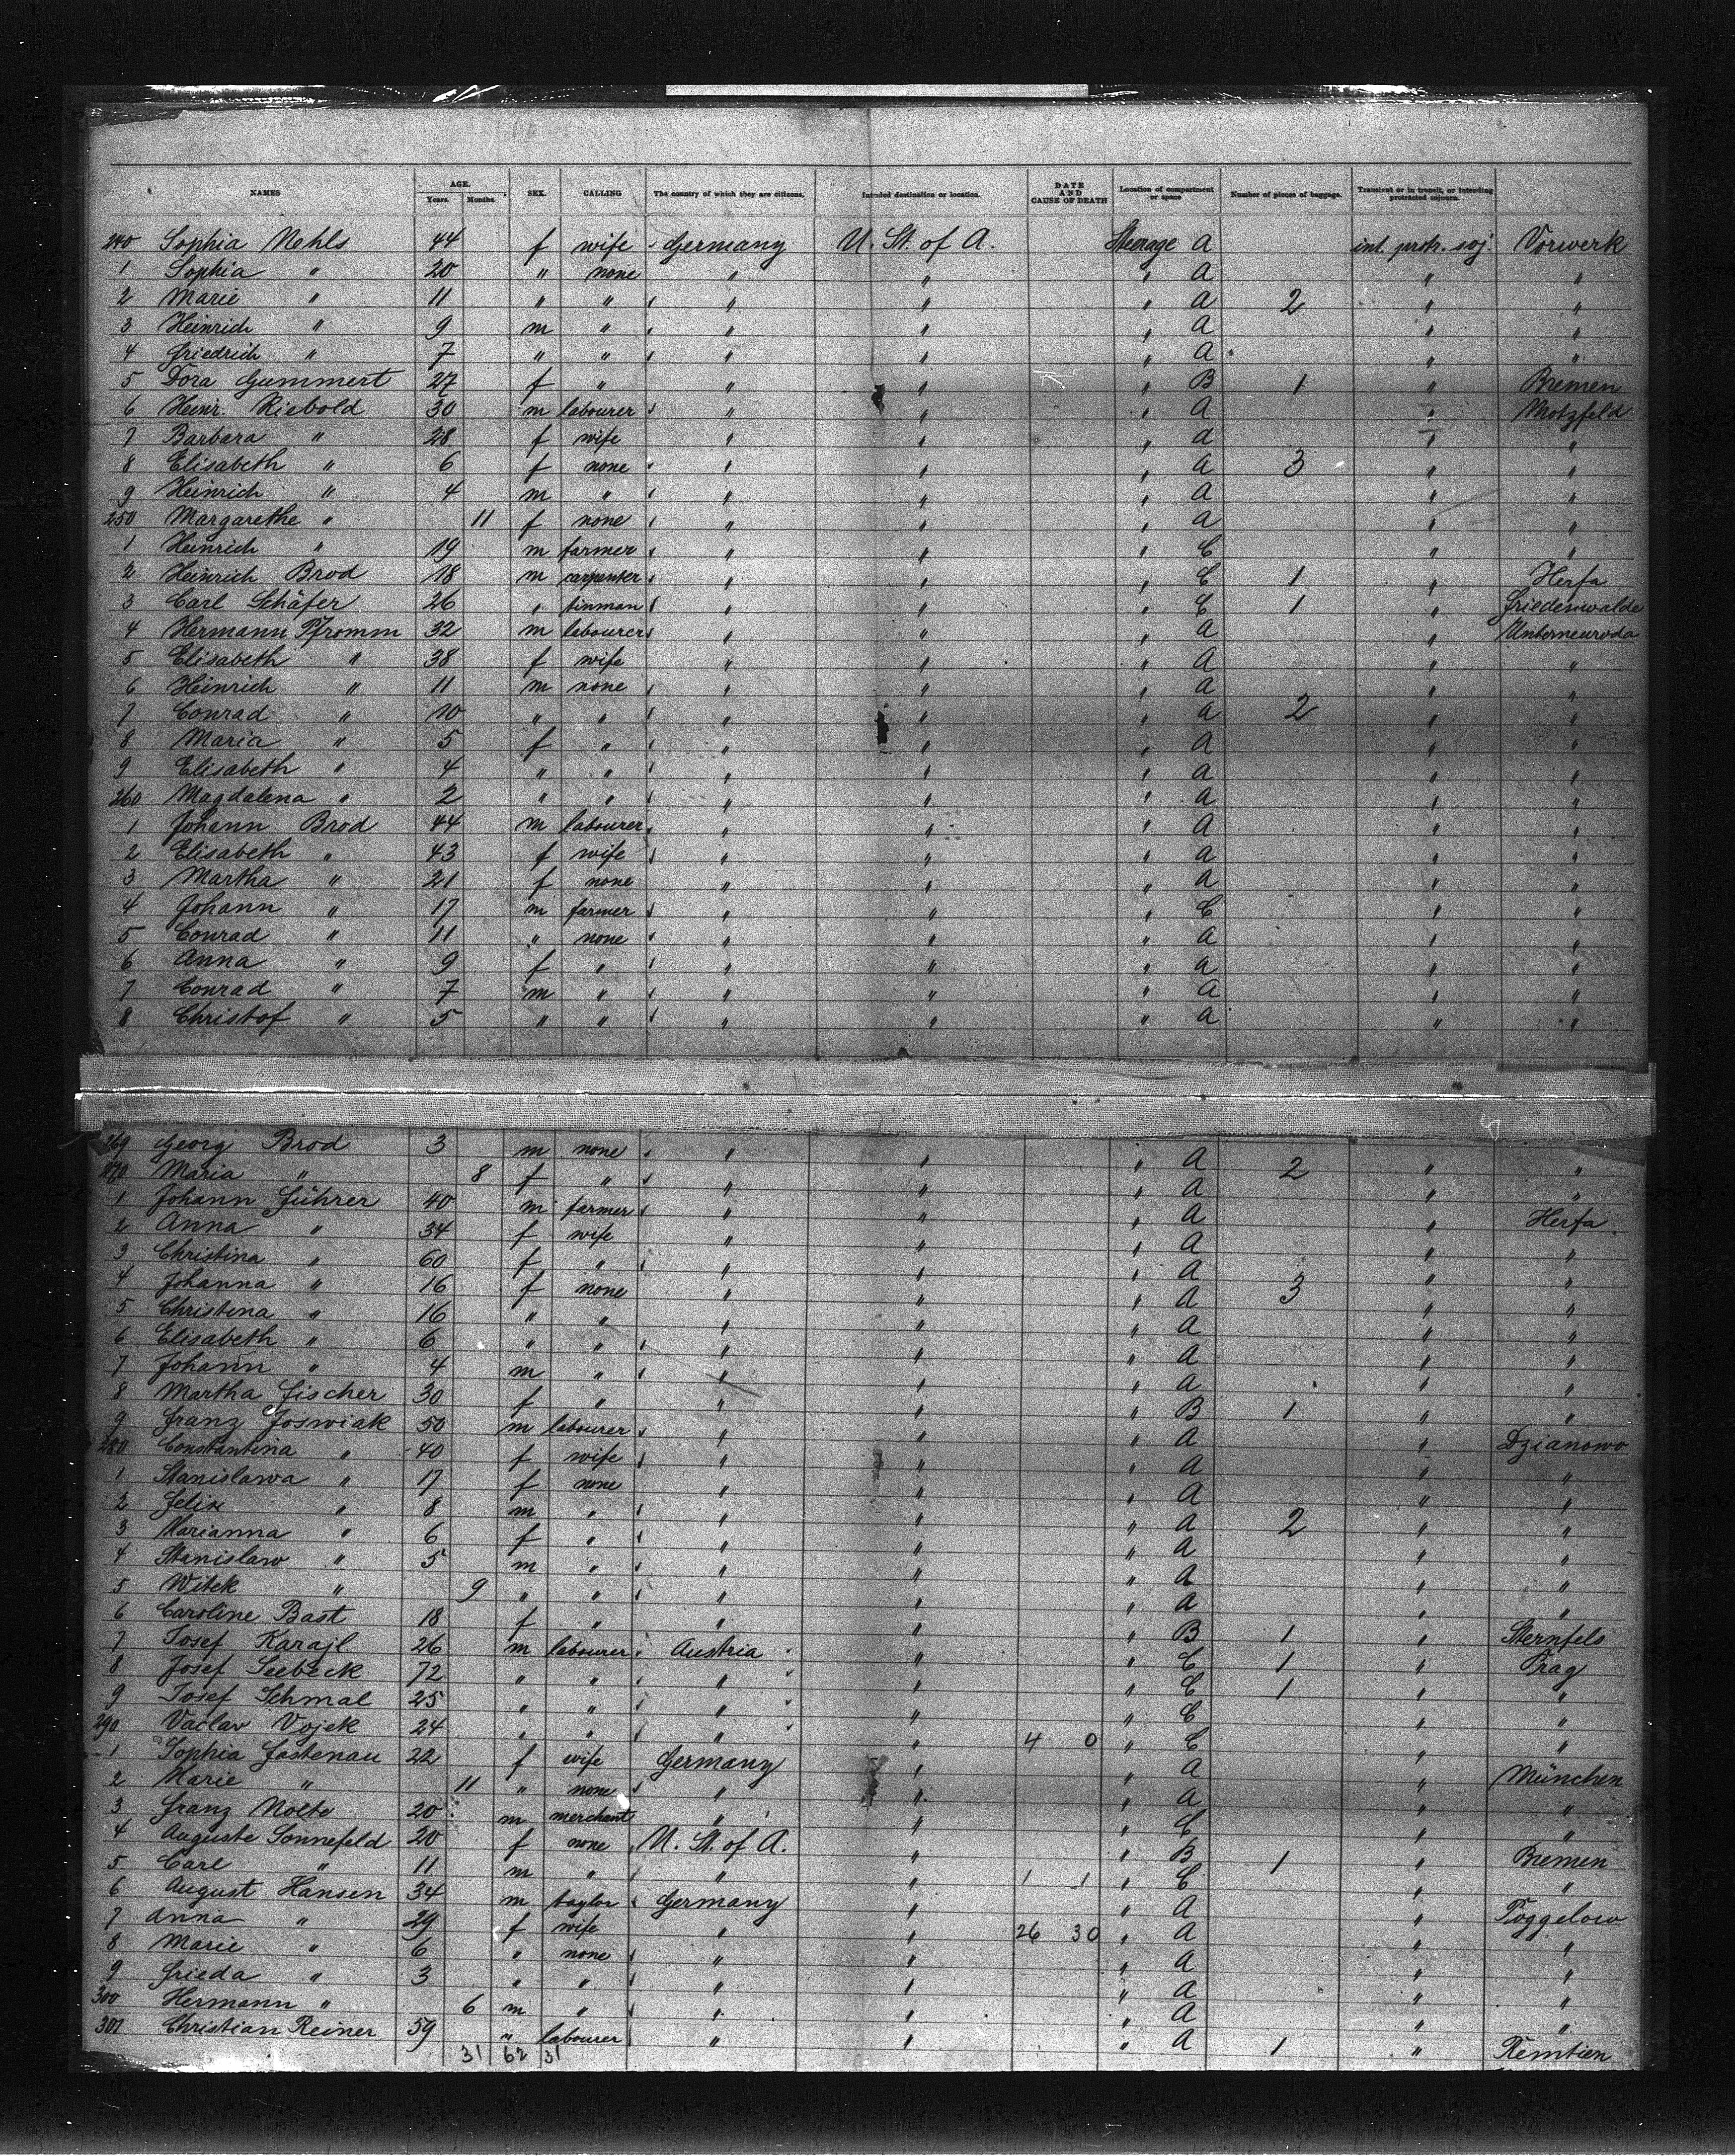 NAMES AGE. Years. Months. SEX. CALLING The country of which they are citizens. Intended destination or location. DATE AND CAUSE OF DEATH Location of compartment or space Number of pieces of baggage. Transient or in transit, or intending protracted sojourn.
240 Sophia Nehls 44 f wife Germany U. St. of A. Steerage A int. protr. soj. Vorwerk
1 Sophia " 20 " none " " " A " "
2 Marie " 11 " " " " " A 2 " "
3 Heinrich " 9 m " " " " A " "
4 Friedrich " 7 " " " " " A " "
5 Dora Gummert 27 f " " " " B 1 " Bremen
6 Heinr. Riebold 30 m labourer " " " A " Motzfeld
7 Barbara " 28 f wife " " " A " "
8 Elisabeth " 6 f none " " " A 3 " "
9 Heinrich " 4 m " " " " A " "
250 Margarethe " 11 f none " " " A " "
1 Heinrich " 19 m farmer " " " C " "
2 Heinrich Brod 18 m carpenter " " " C 1 " Herfa
3 Carl Schäfer 26 " tinman " " " C 1 " Friedewalde
4 Hermann Pfromm 32 m labourer " " " A " Unterneuroda
5 Elisabeth " 38 f wife " " " A " "
6 Heinrich " 11 m none " " " A " "
7 Conrad " 10 " " " " " A 2 " "
8 Maria " 5 f " " " " A " "
9 Elisabeth " 4 " " " " " A " "
260 Magdalena " 2 " " " " " A " "
1 Johann Brod 44 m labourer " " " A " "
2 Elisabeth " 43 f wife " " " A " "
3 Martha " 21 f none " " " A " "
4 Johann " 17 m farmer " " " C " "
5 Conrad " 11 " none " " " A " "
6 Anna " 9 f " " " " A " "
7 Conrad " 7 m " " " " A " "
8 Christof " 5 " " " " " A " "
269 Georg Brod 3 m none " " " A 2 " "
270 Maria " 8 f " " " " A " "
1 Johann Führer 40 m farmer " " " A " Herfa
2 Anna " 34 f wife " " " A " "
3 Christina " 60 f " " " " A " "
4 Johanna " 16 f none " " " A 3 " "
5 Christina " 16 " " " " " A " "
6 Elisabeth " 6 " " " " " A " "
7 Johann " 4 m " " " " A " "
8 Martha Fischer 30 f " " " " B 1 " "
9 Franz Joswiak 50 m labourer " " " A " Dzianowo
280 Constantina " 40 f wife " " " A " "
1 Stanislawa " 17 f none " " " A " "
2 Felix " 8 m " " " " A 2 " "
3 Marianna " 6 f " " " " A " "
4 Stanislaw " 5 m " " " " A " "
5 Witek " 9 " " " " " A " "
6 Caroline Bast 18 f " " " " B 1 " Sternfels
7 Josef Karajl 26 m labourer Austria " " C 1 " Prag
8 Josef Seebeck 72 " " " " " C 1 " "
9 Josef Schmal 25 " " " " " C " "
290 Vaclav Vojek 24 " " " " 4 0 " C " "
1 Sophia Fastenau 22 f wife Germany " " A " München
2 Marie " 11 " none " " " A " "
3 Franz Nolte 20 m merchant " " " C " "
4 Auguste Sonnefeld 20 f none U. St. of A. " " B 1 " Bremen
5 Carl " 11 m " " " 1 1 " C " "
6 August Hansen 34 m taylor Germany " " A " Poggelow
7 Anna " 29 f wife " " 26 30 " A " "
8 Marie " 6 " none " " " A " "
9 Frieda " 3 " " " " " A " "
300 Hermann " 6 m " " " " A " "
301 Christian Reiner 59 " labourer " " " A 1 " Remtien
31 62 31